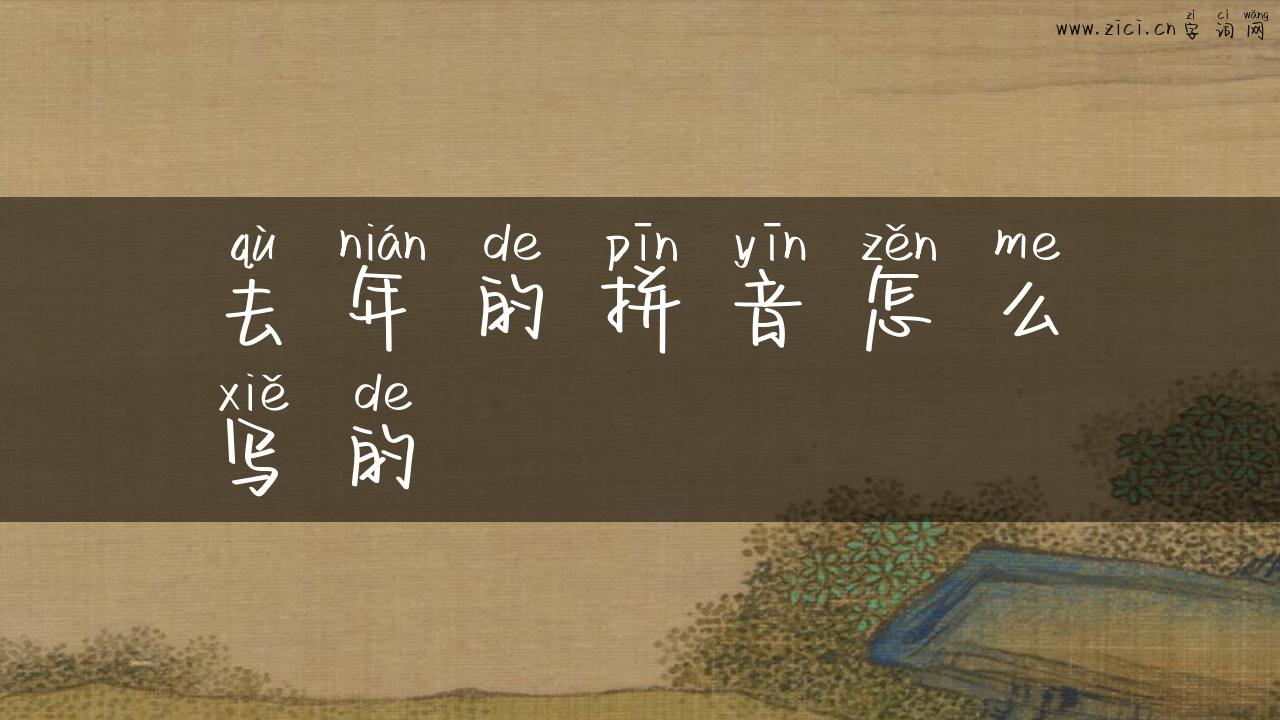 zì cí wǎng
www.zici.cn 字词网
qù nián de pīn yīn zěn me
去年的拼音怎么
xiě de
写的